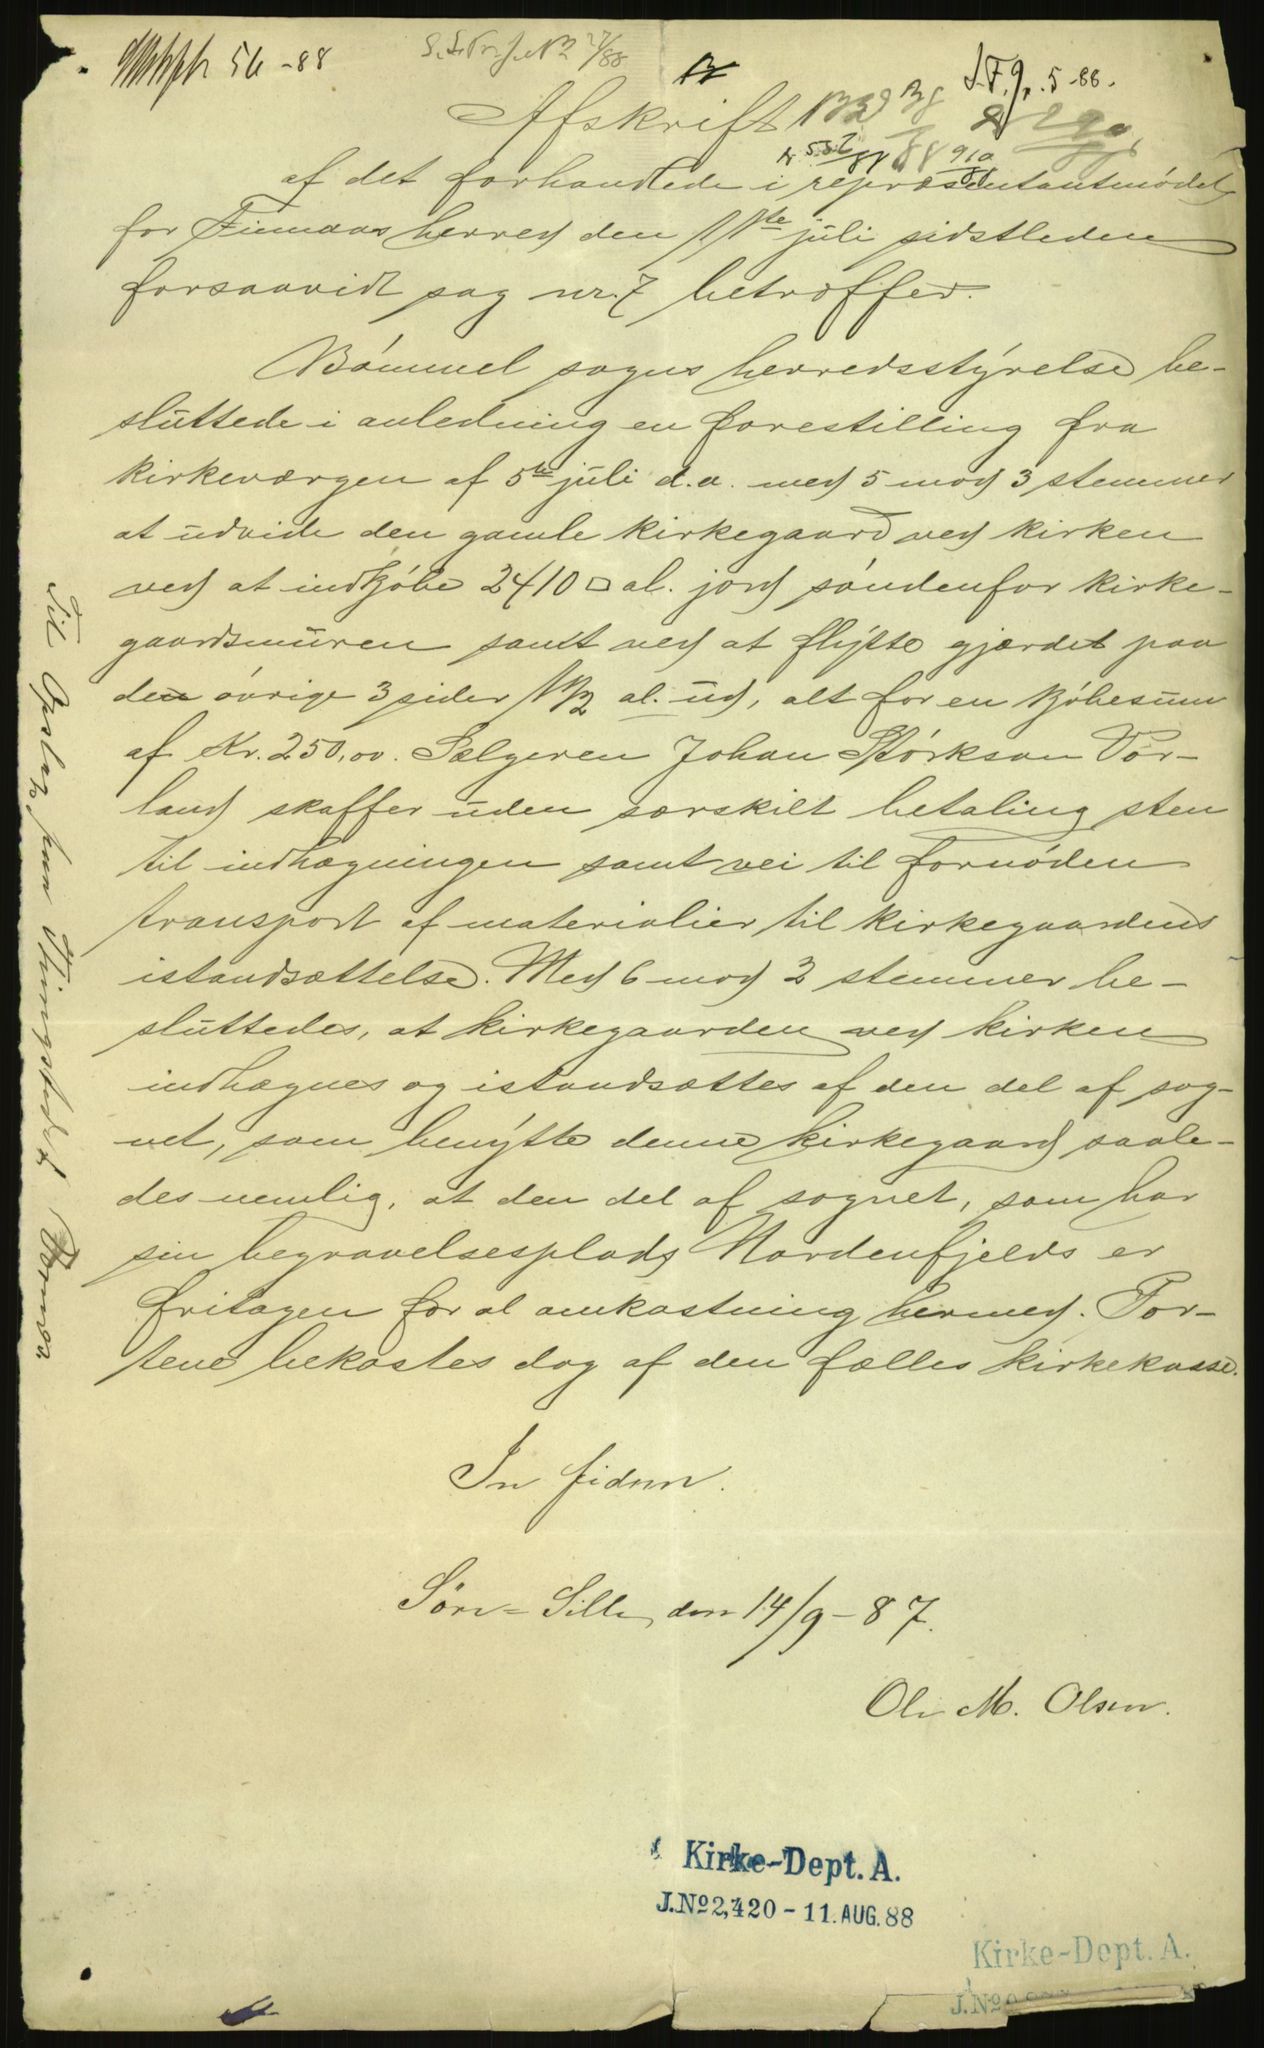 56-88
S.F. Jr. 5-88.
Afskrift
af det forhandlede i repræsentantmødet
for Finnaas herred den 11te juli sidstleden
forsaavidt sag nr. 7 betræffer.
Bømmel sogns herredsstyrelse be-
sluttede i anledning en forestilling fra
kirkeværgen af 5te juli d.a. med 5 mod 3 stemmer
at udvide den gamle kirkegaard ved kirken
ved at indkjøbe 2410 □ al. jord søndenfor kirke-
gaardsmuren samt ved at flytte gjærdet paa
den øvrige 3 sider 1 1/2 al. ud, alt for en kjøbesum
af Kr. 250,00. Sælgeren Johan Størkson Vor-
land skaffer uden særskilt betaling sten
til indhægningen samt vei til fornøden
transport af materialier til kirkegaardens
istandsættelse. Med 6 mod 2 stemmer be-
sluttedes, at kirkegaarden ved kirken
indhægnes og istandsættes af den del af sog-
net, som benytte denne kirkegaard saale-
des nemlig, at den del af sognet, som har
sin begravelsesplads Nordenfjelds er
fritagen for al omkostning hermed. Por-
tene bekostes dog af den fælles kirkekasse.
In fidem.
den 14/9-87.
Ole M. Olsen.
Kirke-Dept. A.
J.No 2,420 - 11. AUG. 88
Kirke-Dept. A.
J.No